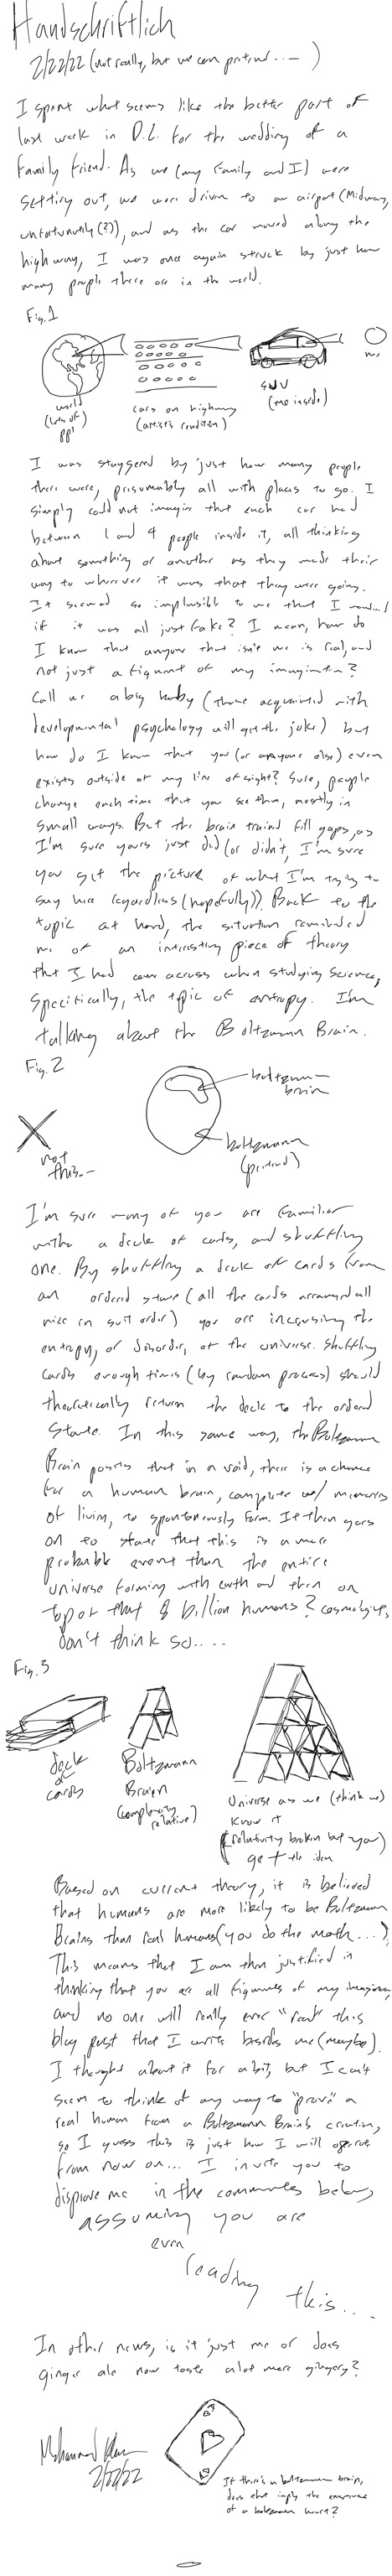 Handschriftlich
2/22/22 (not really, but we can pretend....)
I spent what seems like the better part of
last week in D.C. for the wedding of a
family friend. As we (my family and I) were
setting out, we were driven to an airport (Midway,
unfortunately(?)), and as the car moved along the
highway, I was once again struck by just how
many people there are in the world.
Fig. 1
world
(lots of)
ppl
cars on highway
(artist's rendition)
SUV
(me inside)
me
I was staggered by just how many people
there were, presumably all with places to go. I
simply could not imagine that each car had
between 1 and 4 people inside it, all thinking
about something or another as they made their
way to wherever it was that they were going.
It seemed so implausible to me that I wondered
if it was all just fake? I mean, how do
I know that anyone that isn't me is real, and
not just a figment of my imagination?
Call me a big baby (those acquainted with
developmental psychology will get the joke) but
how do I know that you (or anyone else) even
exists outside of my line of sight? Sure, people
change each time that you see them, mostly in
small ways. But the brain trained fill gaps, as
I'm sure yours just did (or didn't, I'm sure
you get the picture of what I'm trying to
say here regardless (hopefully)). Back to the
topic at hand, the situation reminded
me of an interesting piece of theory
that I had come across when studying science,
specifically, the topic of entropy. I'm
talking about the Boltzmann Brain.
Fig. 2
not
this...
boltzmann
brain
boltzmann
(pretend)
I'm sure many of you are familiar
with a deck of cards, and shuffling
one. By shuffling a deck of cards from
an ordered state (all the cards arranged all
nice in suit order) you are increasing the
entropy, or disorder, of the universe. Shuffling
cards enough times (by random process) should
theoretically return the deck to the ordered
state. In this same way, the Boltzmann
Brain posits that in a void, there is a chance
for a human brain, complete w/ memories
of living, to spontaneously form. It then goes
on to state that this is a more
probable event than the entire
universe forming with earth and then on
top of that 8 billion humans? cosmologists
don't think so....
Fig. 3
deck
of
cards
Boltzmann
Brain
(complexity
relative)
Universe as we (think we)
know it
(relativity broken but you
get the idea)
Based on current theory, it is believed
that humans are more likely to be Boltzmann
Brains than real humans (you do the math...)
This means that I am then justified in
thinking that you are all figments of my imagination,
and no one will really ever "read" this
blog post that I write besides me (maybe).
I thought about it for a bit, but I can't
seem to think of any way to "prove" a
real human from a Boltzmann Brain's creation,
so I guess this is just how I will operate
from now on... I invite you to
disprove me in the comments below,
assuming you are
even
reading
this...
In other news, is it just me or does
ginger ale now taste alot more gingery?
Mohammad
2/22/22
If there's a boltzmann brain,
does that imply the existence
of a boltzmann heart?